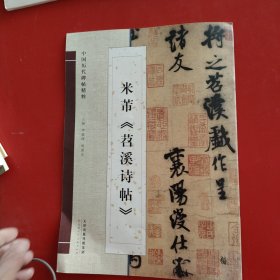 中国历代碑帖精粹
米芾《苕溪诗帖》
将之苕溪戏作呈
诸友
襄阳漫仕
黻